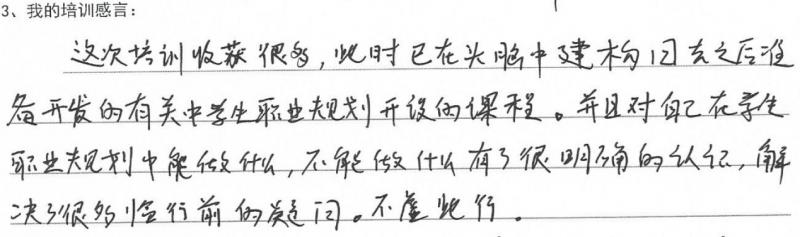 3、我的培训感言：
这次培训收获很多，此时已在头脑中建构回去之后准
备开发的有关中学生职业规划开设的课程。并且对自己在学生
职业规划中能做什么，不能做什么有了很明确的认识，解
决了很多临行前的疑问。不虚此行。